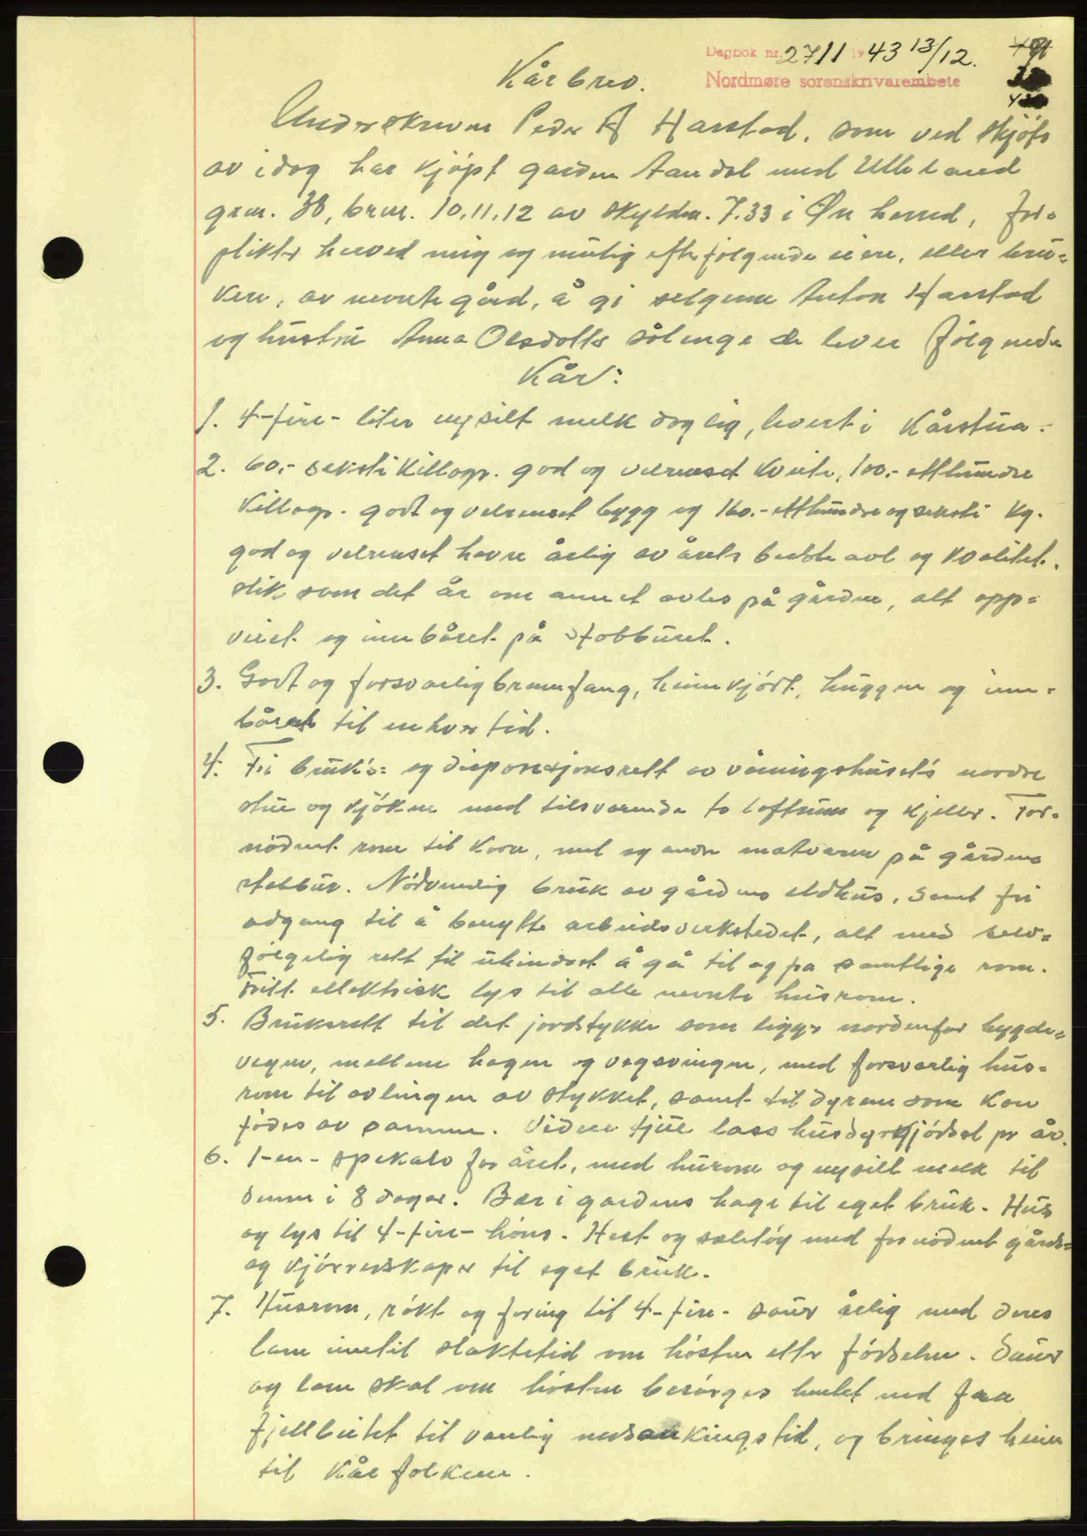 Dagbok nr. 2711 19 43 13/12.
Nordmøre sorenskriverembete
Kårbrev.
Underskrevne Peder A Harstad, som ved skjøte
av idag har kjøpt garden Aandal med Utleland
grnr. 38, brnr. 10.11.12 av skyldm. 7.33 i Øre herred, for-
plikter herved mig og mulig efterfølgende eiere, eller bru-
kere, av nevnte gård, å gi selgerne Anton Harstad
og hustru Anna Olsdotter sålenge de lever følgende
Kår:
1. 4-fire- liter nysilt melk daglig, levert i Kårstua.
2. 60.- seksti Killogr. god og velrenset Kveite, 100.- etthundre
Killogr. godt og velrenset bygg og 160.- etthundre og seksti Kg.
god og velrenset havre årlig av årets beste avl og kvalitet.
slik som det år om annet avles på gården, alt opp-
veiet og innbåret på Stobburet.
3. Godt og forsvarlig brennfang, heimkjørt, huggen og inn-
båret til enhver tid.
4. Fri bruks- og disposisjonsrett av våningshusets nordre
stue og kjøken med tilsvarende to loftrum og kjeller. For-
nødent rom til Korn, mel og andre matvarer på gårdens
stabbur. Nødvendig bruk av gårdens eldhus, samt fri
adgang til å benytte arbeidsverkstedet, alt med selv-
følgelig rett til uhindret å gå til og fra samtlige rom.
Fritt ellektrisk lys til alle nevnte husrom.
5. Bruksrett til det jordstykke som ligger nordenfor bygde-
vegen, mellem hagen og vegsvingen, med forsvarlig hus-
rom til avlingen av stykket, samt til dyrene som Kan
fødes av samme. Videre tjue lass husdyrgjødsel pr år.
6. 1-en- spekalv for året, med husrom og nysilt melk til
denne i 8 dager. Bær i gardens hage til eget bruk. Hus
og lys til 4-fire- høns. Hest og seletøy med fornødent gårds-
og kjørredskaper til eget bruk.
7. Husrom, røkt og foring til 4-fire- sauer årlig med deres
lam inntil slaktetid om høsten etter fødselen. Sauer
og lam skal om høsten besørges hentet ned fra
fjellbeitet til vanlig nedsankingstid, og bringes heim
til Kårfolkene.